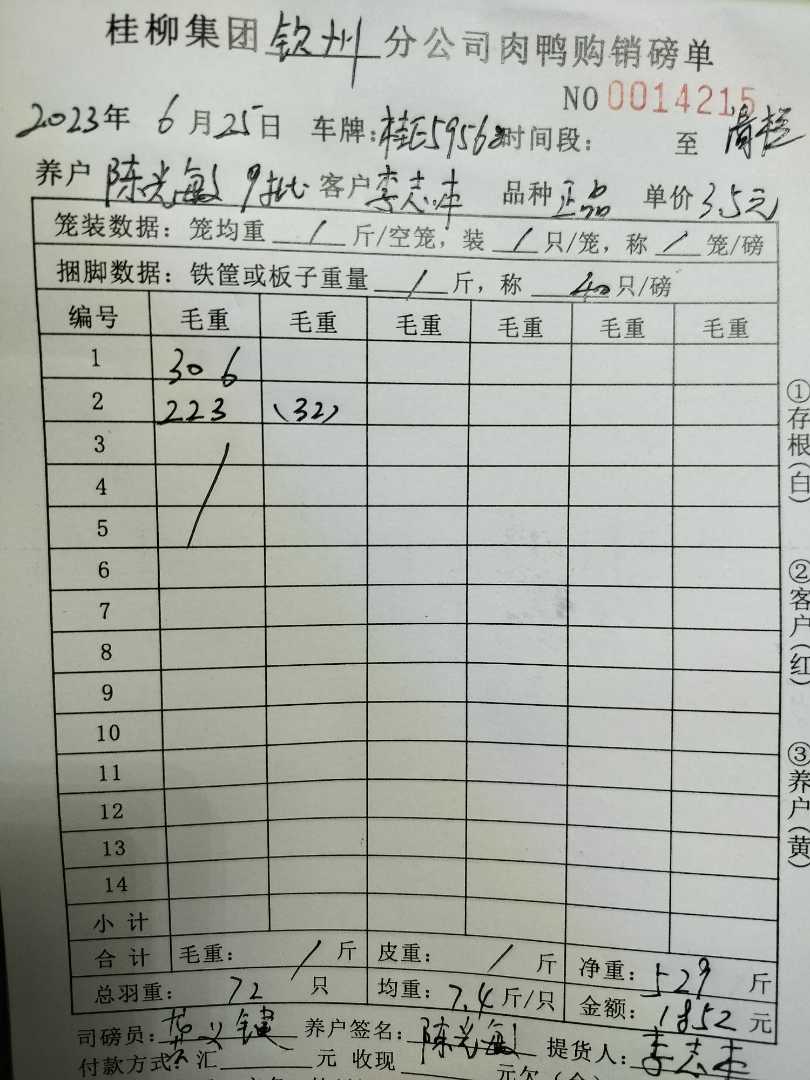 桂柳集团钦州分公司肉鸭购销磅单
NO 0014215
2023年 6月25日 车牌:桂E5956 时间段: 至
养户 陈光敏 9批 客户 李志 品种 正品 单价 3.5元
笼装数据: 笼均重 / 斤/空笼, 装 / 只/笼, 称 / 笼/磅
捆脚数据: 铁筐或板子重量 / 斤, 称 40 只/磅
编号 毛重 毛重 毛重 毛重 毛重 毛重
1 306
2 223 (32)
3 /
4
5
6
7
8
9
10
11
12
13
14
小 计
合 计 毛重: / 斤 皮重: / 斤 净重: 529 斤
总羽重: 72 只 均重: 7.4 斤/只 金额: 1852 元
司磅员: 养户签名: 陈光敏 提货人: 李志
付款方式: 汇 元 收现 元欠
①存根(白)
②客户(红)
③养户(黄)